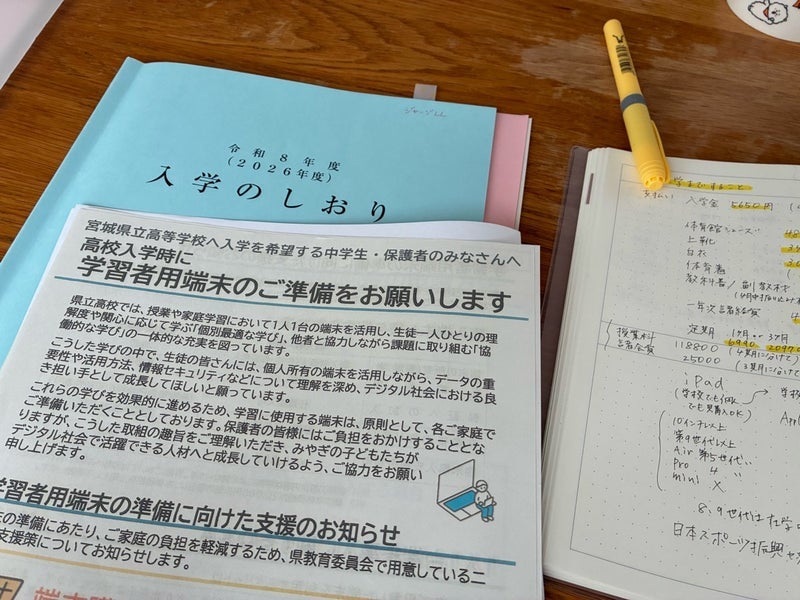 ジャージLL
令和8年度
(2026年度)
入学のしおり
宮城県立高等学校へ入学を希望する中学生・保護者のみなさんへ
高校入学時に
学習者用端末のご準備をお願いします
県立高校では、授業や家庭学習において1人1台の端末を活用し、生徒一人ひとりの理
解度や関心に応じて学ぶ「個別最適な学び」、他者と協力しながら課題に取り組む「協
働的な学び」の一体的な充実を図っています。
こうした学びの中で、生徒の皆さんには、個人所有の端末を活用しながら、データの重
要性や活用方法、情報セキュリティなどについて理解を深め、デジタル社会における良
き担い手として成長してほしいと願っています。
これらの学びを効果的に進めるため、学習に使用する端末は、原則として、各ご家庭で
ご準備いただくこととしております。保護者の皆様にはご負担をおかけすることとな
りますが、こうした取組の趣旨をご理解いただき、みやぎの子どもたちが
デジタル社会で活躍できる人材へと成長していけるよう、ご協力をお願い
申し上げます。
学習者用端末の準備に向けた支援のお知らせ
の準備にあたり、ご家庭の負担を軽減するため、県教育委員会で用意している二
支援策についてお知らせします。
学まですること
支払い 入学金 5650円
体育館シューズ
上靴
白衣
体育着
教科書/副教材
一年次 諸会費
定期 1ヶ月 or 3ヶ月
授業料 11800 6990 2097
諸会費 25000
iPad
(学校でも個人
でも購入OK)
10インチ以上
第9世代以上
Air 第5世代〃
Pro 4 〃
mini X
8、9世代は在学
日本スポーツ振興セ